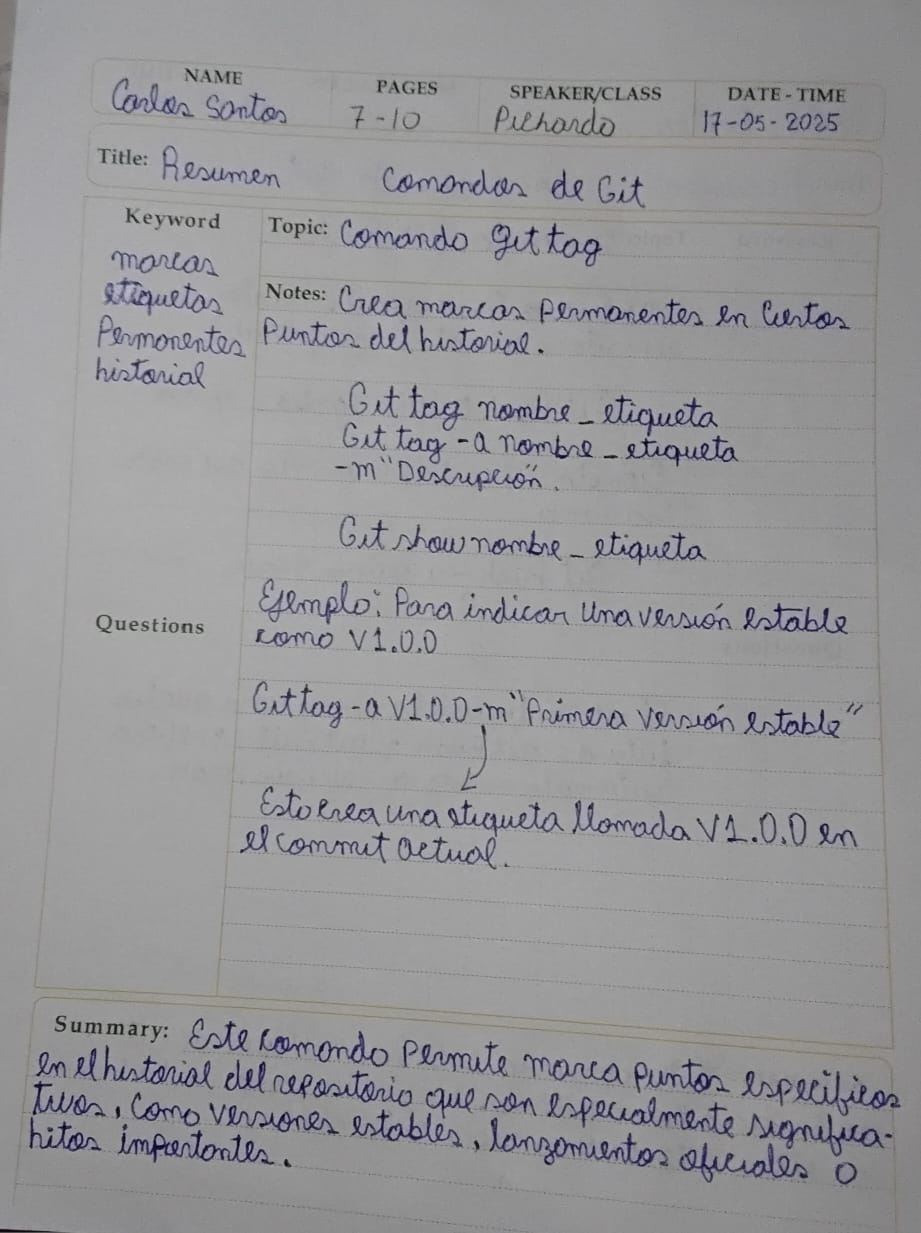 NAME PAGES SPEAKER/CLASS DATE - TIME
Carlos Santos 7-10 Pichardo 17-05-2025
Title: Resumen Comandos de Git
Keyword
marcas
etiquetas
Permanentes
historial
Topic: Comando git tag
Notes: Crea marcas permanentes en Ciertos
Puntos del historial.
Git tag nombre_etiqueta
Git tag -a nombre_etiqueta
-m "Descripción".
Git show nombre_etiqueta
Questions
Ejemplo: Para indicar Una versión estable
como V1.0.0
Git tag -a V1.0.0 -m "Primera versión estable"
Esto crea una etiqueta llamada V1.0.0 en
el commit actual.
Summary: Este comando Permite marca puntos especificos
en el historial del repositorio que son especialmente significa-
tivos, como versiones estables, lanzamientos oficiales o
hitos importantes.